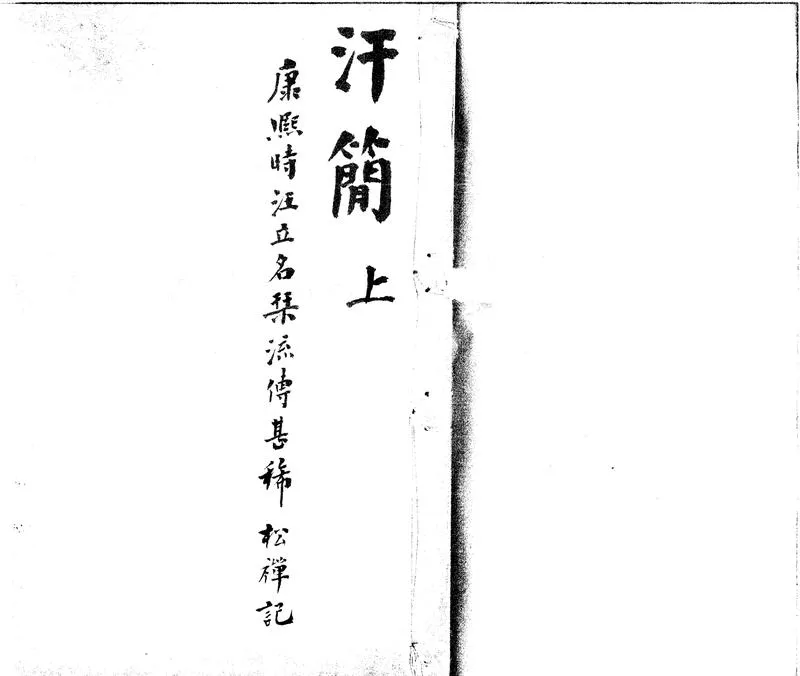 汗簡 上
康熙時汪立名栞流傳甚稀 松禪記